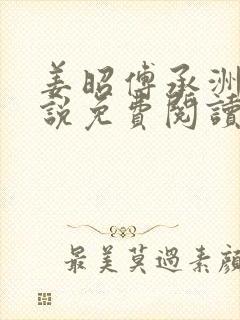 姜昭傅承洲
說免費閱讀
最美莫過素顏